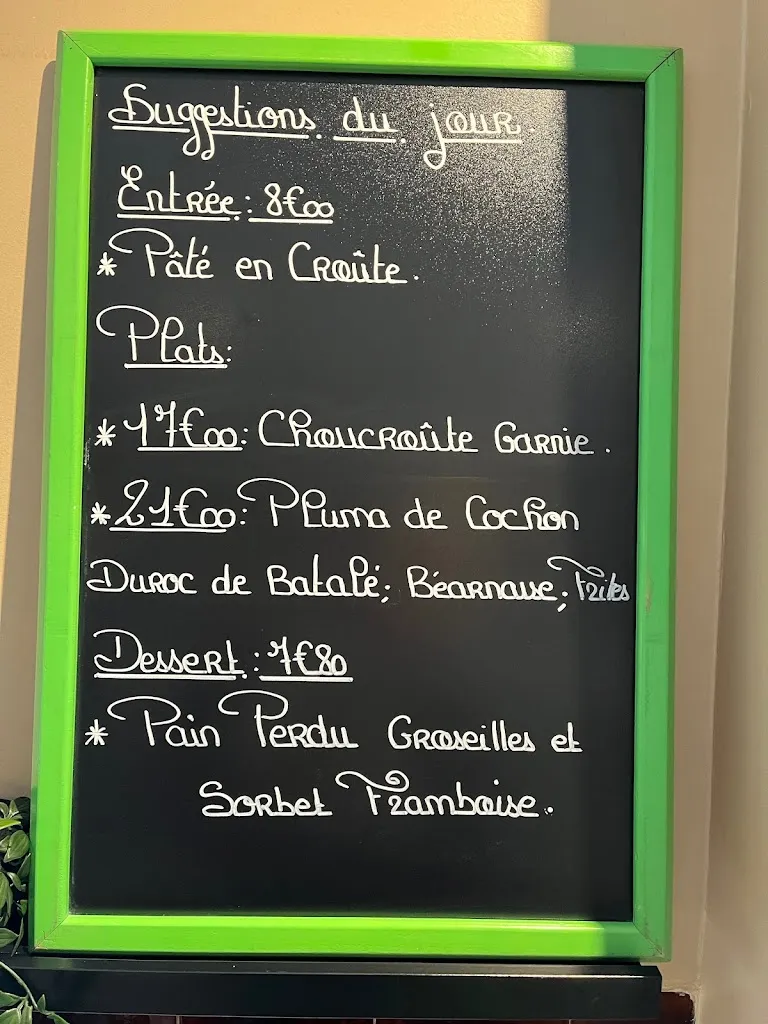 Suggestions du jour.
Entrée: 8€00
* Pâté en Croûte.
Plats:
* 17€00: Choucroûte Garnie.
* 21€00: Pluma de Cochon
Duroc de Batalé; Béarnaise; Frites
Dessert: 7€80
* Pain Perdu Groseilles et
Sorbet Framboise.